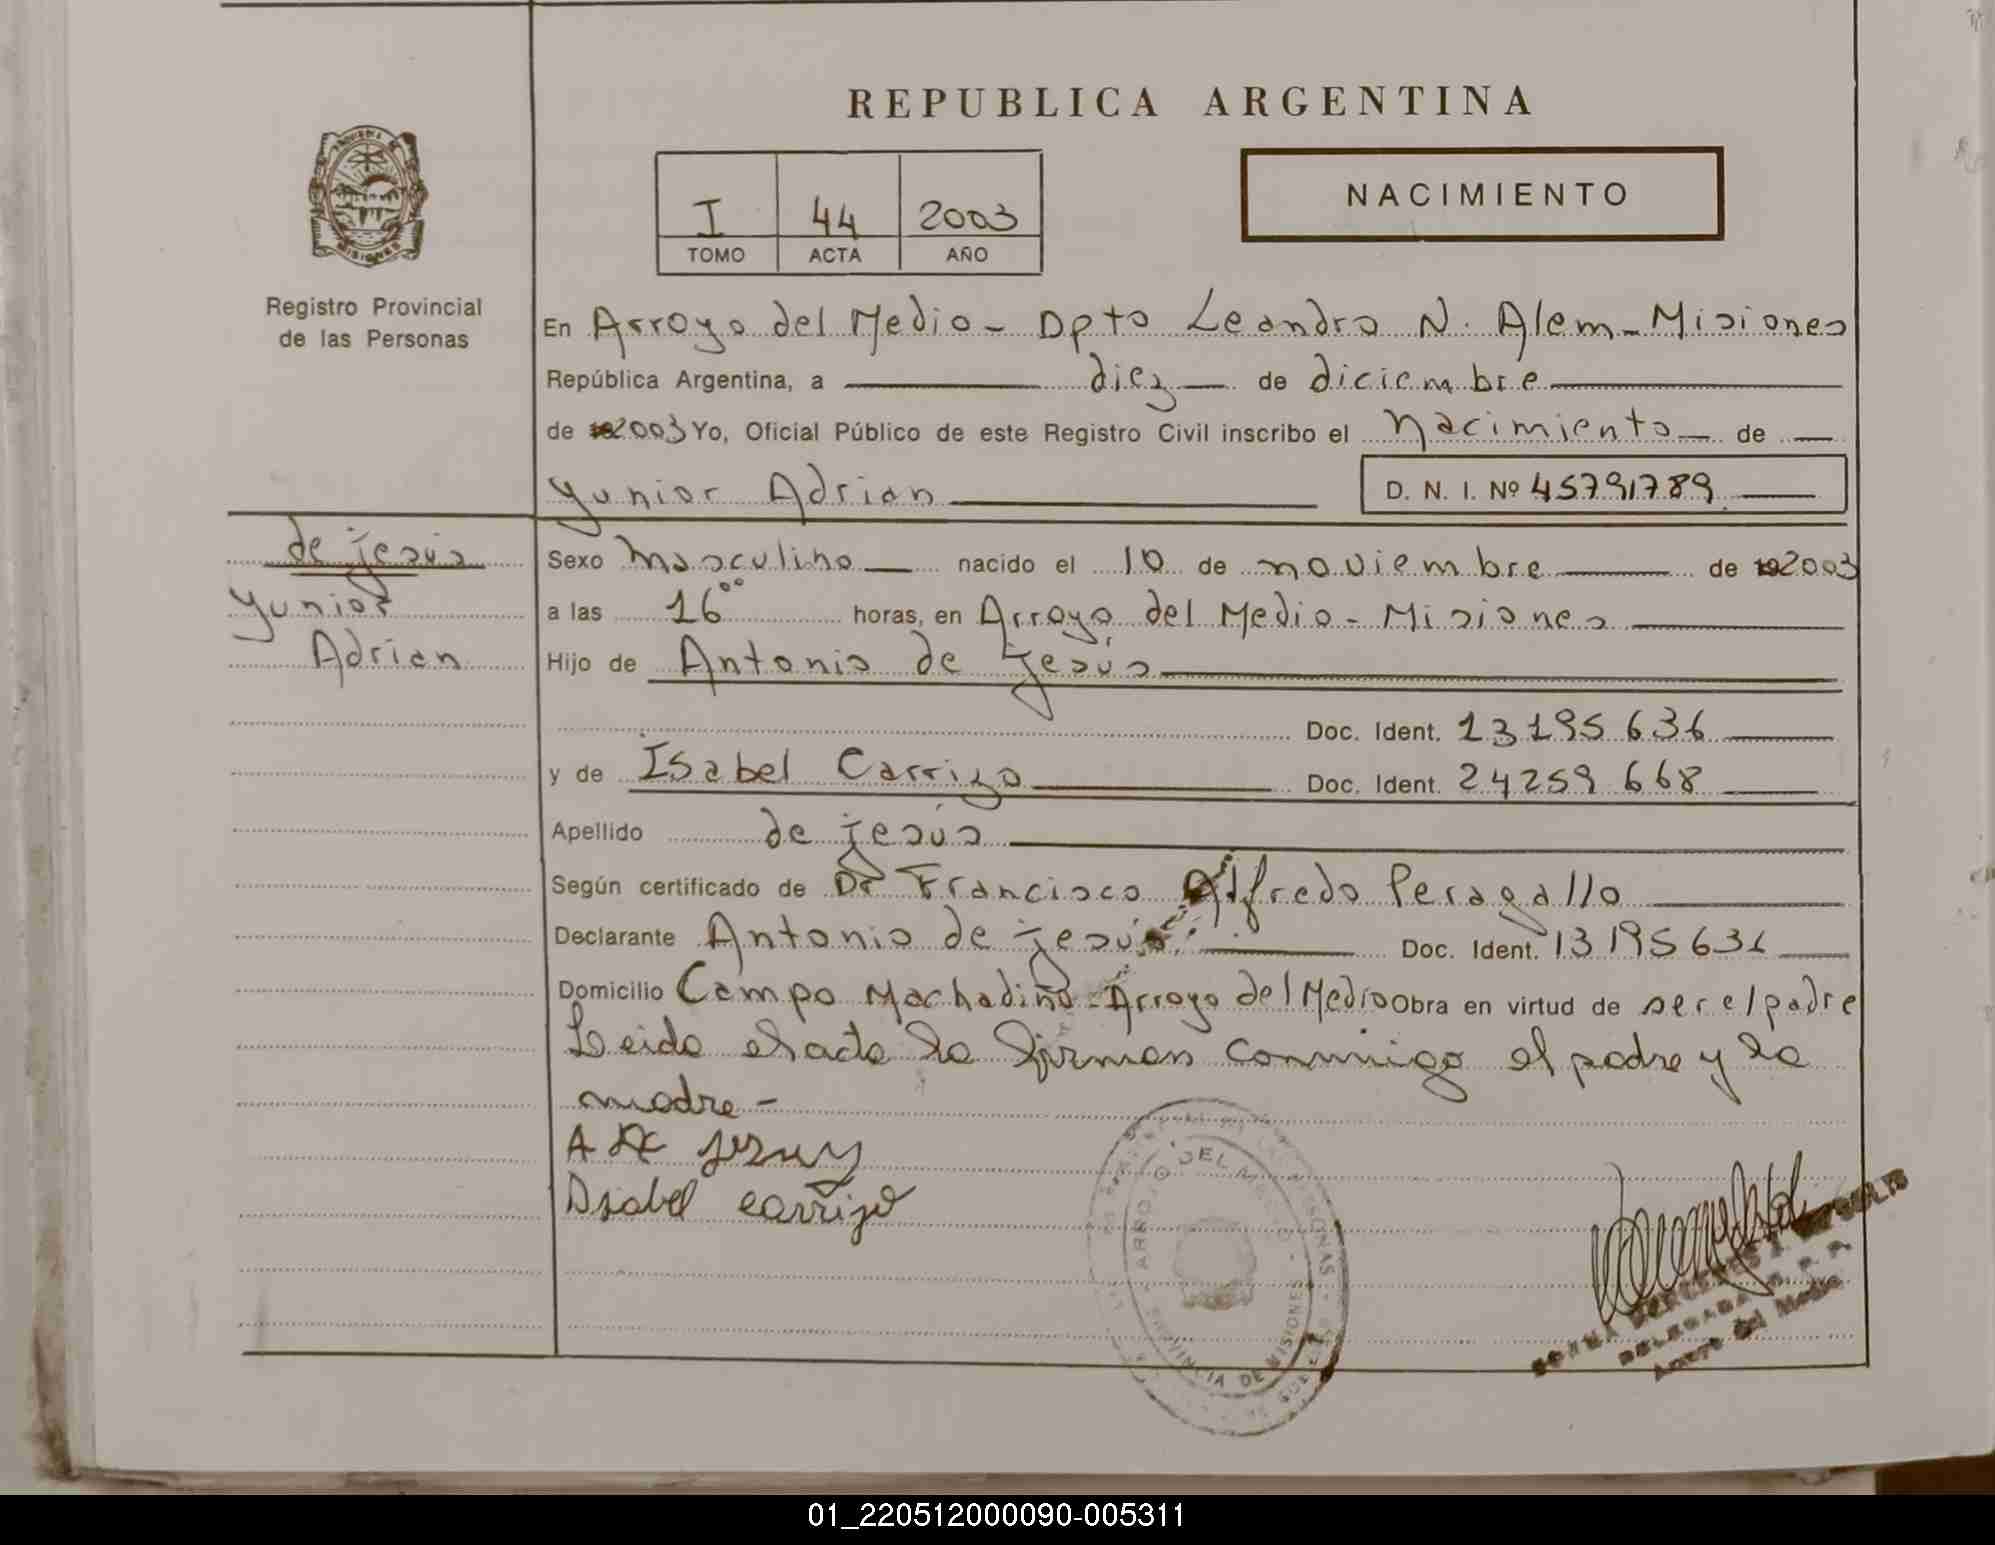 REPUBLICA ARGENTINA
NACIMIENTO
I 44 2003
TOMO ACTA AÑO
MISIONES
Registro Provincial
de las Personas
En Arroyo del Medio - Dpto Leandro N. Alem - Misiones
República Argentina, a diez de diciembre
de 192003 Yo, Oficial Público de este Registro Civil inscribo el nacimiento de
Yunior Adrian D. N. I. Nº 45791789
de jesús
Yunior
Adrian
Sexo masculino nacido el 10 de noviembre de 192003
a las 16°° horas, en Arroyo del Medio - Misiones
Hijo de Antonio de jesús
Doc. Ident. 13195636
y de Isabel Carrizo Doc. Ident. 24259668
Apellido de jesús
Según certificado de Dr Francisco Alfredo Peragallo
Declarante Antonio de jesús Doc. Ident. 13195636
Domicilio Campo Machadiño - Arroyo del Medio Obra en virtud de ser el padre
Leida el acta la firman conmigo el padre y la
madre -
A De jesuy
Isabel carrizo
ARROYO DEL MEDIO
PROVINCIA DE MISIONES
DELEGADA R. P. P.
Arroyo del Medio
01_220512000090-005311